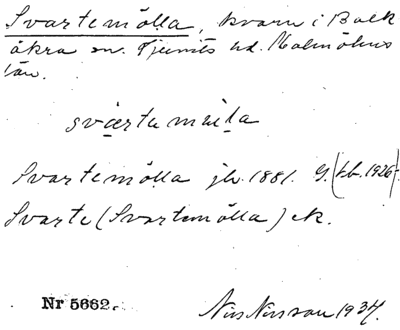 Svartemölla, kvarn i Balk
åkra sn. Ljunits hd. Malmöhus
län.
svartemöila
Svartemölla jb. 1881. G. (kb. 1926).
Svarte (Svartemölla) ek.
Nr 5662.
Nils Nilsson 1934.